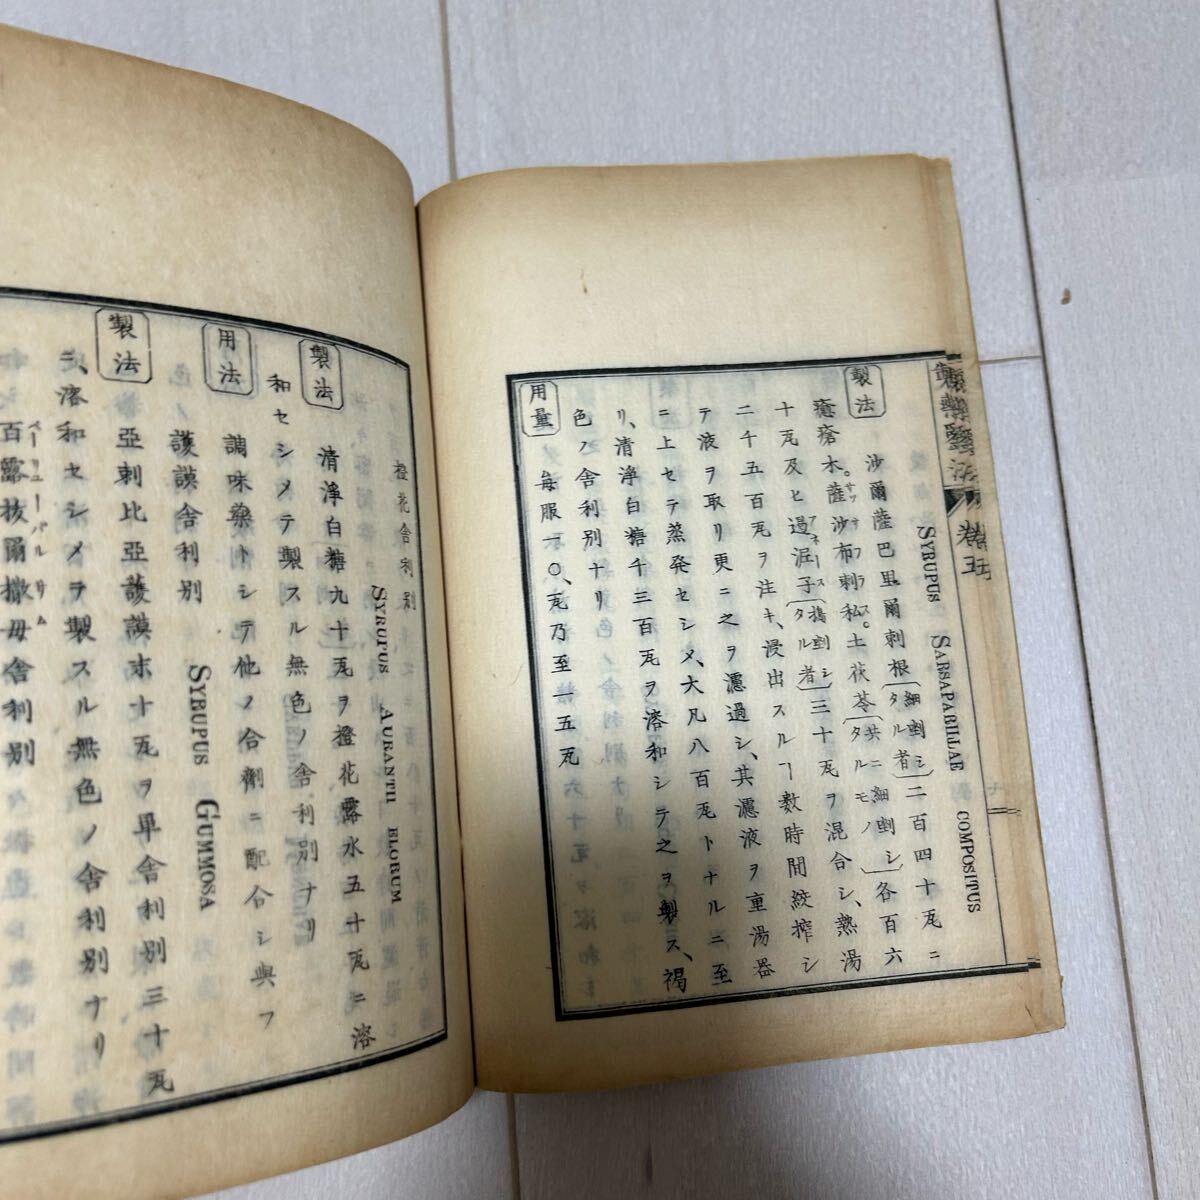 卷五
SYRUPUS SARSAPARILLAE COMPOSITUS
製法 沙爾薩巴里爾刺根(細剉シタル者)二百四十瓦ニ
癒瘡木。薩沙布刺私。土茯苓(共ニ細剉シタルモノ)各百六
サッサフラス
十瓦及ヒ過泥子(搗剉シタル者)三十瓦ヲ混合シ、熱湯
アネース
二千五百瓦ヲ注キ、浸出スルヿ数時間絞搾シ
テ液ヲ取リ更ニ之ヲ濾過シ、其濾液ヲ重湯器
ニ上セテ蒸発セシメ、大凡八百瓦トナルニ至
リ、清淨白糖千三百瓦ヲ溶和シテ之ヲ製ス、褐
色ノ舎利別ナリ
用量 毎服一〇、瓦乃至一五瓦
橙花舎利別 SYRUPUS AURANTII FLORUM
製法 清淨白糖九十瓦ヲ橙花露水五十瓦ニ溶
和セシメテ製スル無色ノ舎利別ナリ
用法 調味藥トシテ他ノ合劑ニ配合シ與フ
護謨舎利別 SYRUPUS GUMMOSA
製法 亞刺比亞護謨末十瓦ヲ單舎利別三十瓦
ニ、溶和セシメテ製スル無色ノ舎利別ナリ
百露抜爾撒毋舎利別
ペーリューバルサム